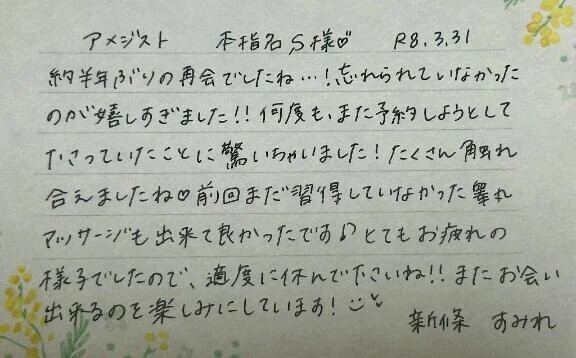 アメジスト 本指名 S様♡ R8.3.31
約半年ぶりの再会でしたね…!忘れられていなかった
のが嬉しすぎました!!何度も、また予約しようとして
たさっていたことに驚いちゃいました!たくさん触れ
合えましたね♡前回まだ習得していなかった睾丸
マッサージも出来て良かったです♪とてもお疲れの
様子でしたので、適度に休んで下さいね!!またお会い
出来るのを楽しみにしています!
新條 すみれ